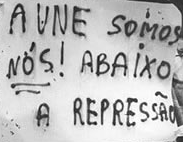 A UNE SOMOS
NÓS! ABAIXO
A REPRESSÃO